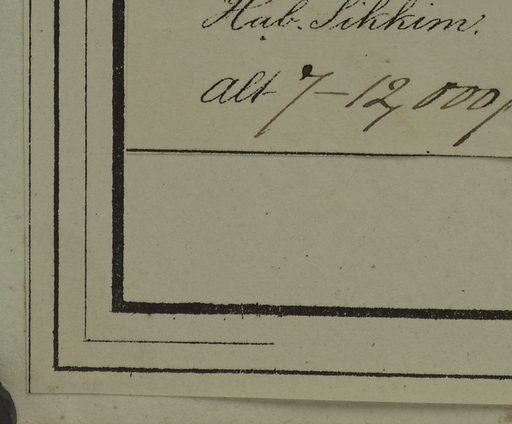 Hab. Sikkim.
alt 7-12,000